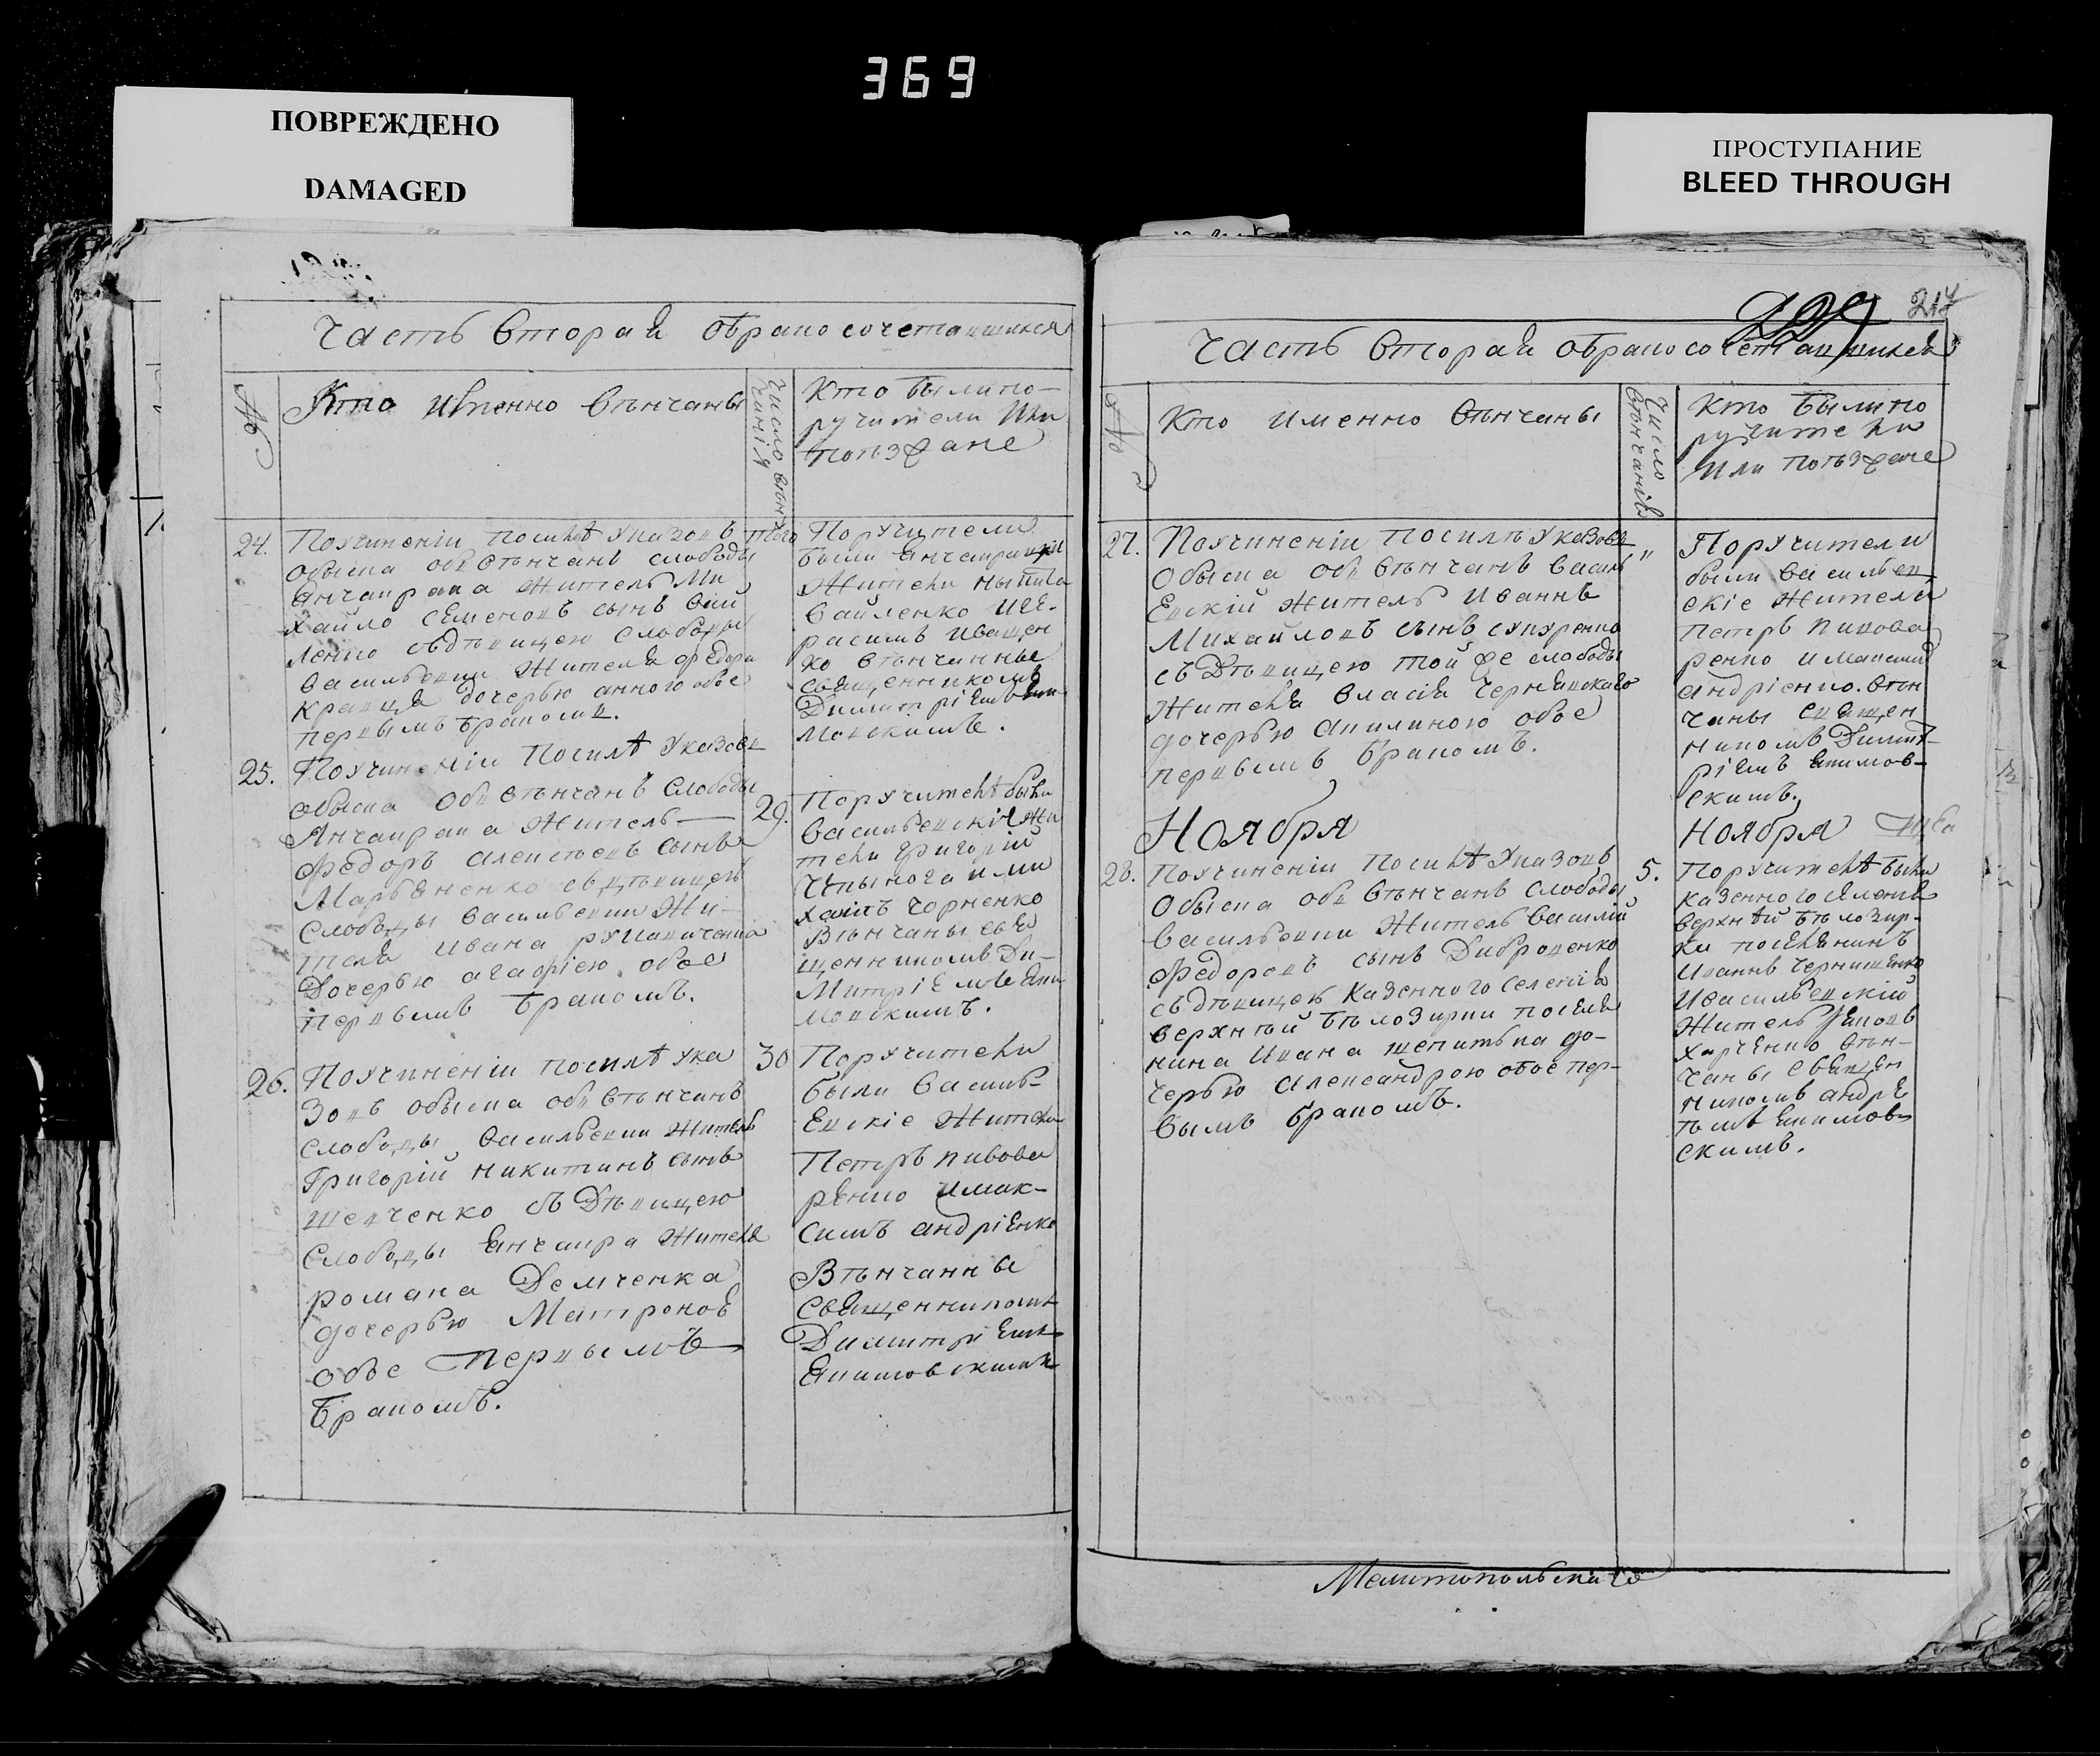 369
ПОВРЕЖДЕНО
DAMAGED
ПРОСТУПАНИЕ
BLEED THROUGH
Часть вторая обракосочетавшихся
№
Кто именно венчаны
число венчанія
Кто были по-
ручители или
поѣзжане
24.
Поучиненіи посилѣ указовъ
обыска обвѣнчанъ слободы
Янчаирака житель Ми
хайло Семеновъ сынъ Вай
ленко съдѣвицею слободы
Васильевки жителя Федора
Кравца дочерью Анною обое
первымъ бракомъ.
того
Поручители
были Янчаирацкіи
жители Никита
Вайленко иге-
расимъ Иващен
ко вѣнчанны
священникомъ
Димитріемъ Яки-
мовскимъ.
25.
Поучиненіи посилѣ указовъ
обыска обвѣнчанъ слободы
Янчаирака житель
Федоръ Алексѣевъ сынъ
Марьяненко съдѣвицею
слободы Васильевки жи-
теля Ивана
дочерью Агафіею обое
первымъ бракомъ.
29.
Поручителѣ были
Васильевскія жи
тели Григорій
ими
хаилъ Чорненко
Вѣнчаны свя
щенникомъ Ди-
митріемъ Яки-
мовскимъ.
26.
Поучиненіи посилѣ ука
зовъ обыска обвѣнчанъ
слободы Васильевки житель
Григорій Никитинъ сынъ
Шевченко съ Дѣвицею
слободы Янчаира жителя
Романа Демченка
дочерью Матроною
обое первымъ
бракомъ.
30
Поручители
были Василь-
евскіе жители
Петръ Пивова
ренко имак-
симъ Андріенко
Вѣнчанны
священникомъ
Димитріемъ
Якимовскимъ
217
Часть вторая обракосочетавшихся
№
Кто именно вѣнчаны
Число вѣнчанія
Кто были по
ручители
или поѣзжане
27.
Поучиненіи посилѣ указовъ
обыска обвѣнчанъ Василь
евскій житель Иваннъ
Михайловъ сынъ Супуренко
съ Дѣвицею той же слободы
жителя Власія Чернявскаго
дочерью Акилиною обое
первымъ бракомъ.
"
Поручители
были Васильев
скіе жители
Петръ Пивова
ренко имаксимъ
Андріенко. вѣн
чаны священ
никомъ Димит-
ріемъ Якимов-
скимъ.
Ноября
Ноября
28.
Поучиненіи посилѣ указовъ
обыска обвѣнчанъ слободы
Васильевки житель Василій
Федоровъ сынъ Диброденко
съдѣвицею казенного селенія
верхнѣй бѣлозирки поселя
нина Ивана
дочерью Александрою обое пер-
вымъ бракомъ.
5.
Поручителѣ были
казенного
верхнѣй бѣлозир-
ки поселянинъ
Иваннъ Чернишенко
Ивасильевскій
житель Яковъ
Харченко вѣн-
чаны священ
никомъ Андре
ѣмъ Якимов-
скимъ.
Мелитопольскаго